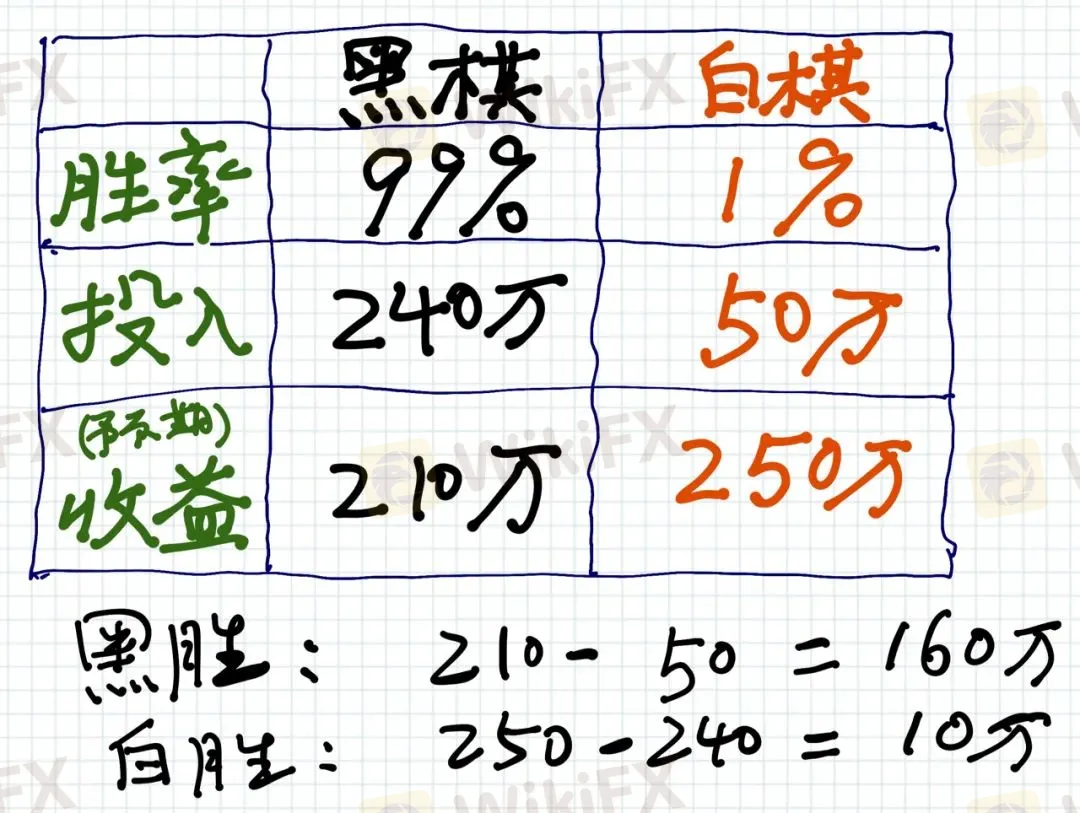 黑棋 白棋
胜率 99% 1%
投入 240万 50万
(预期)
收益 210万 250万
黑胜: 210 - 50 = 160万
白胜: 250 - 240 = 10万
WikiFX